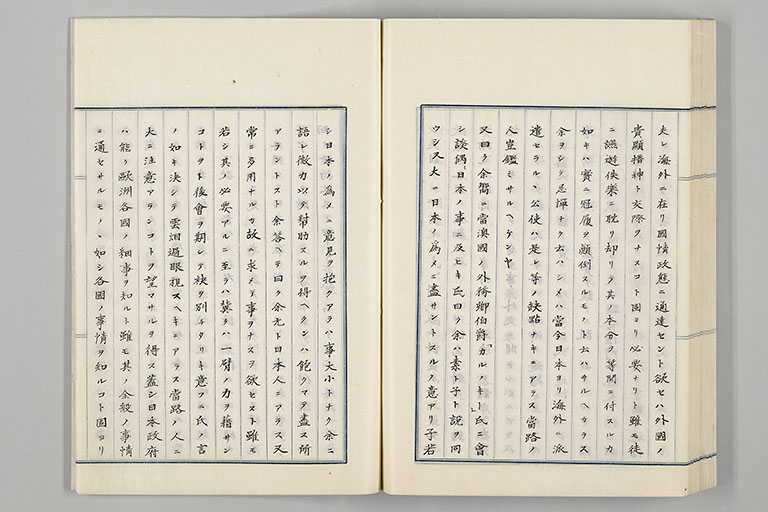 夫レ海外ニ在リ國情政態ニ通達セント欲セハ外國ノ
貴顯搢神ト交際ヲナスコト固ヨリ必要ナリト雖モ徒
ニ讌遊倢樂ニ耽リ却リテ其ノ本分ヲ等閑ニ付スルカ
如キハ實ニ冠履ヲ顚倒スルモノト云ハサルヘカラス
余ヲシテ忌憚ナク云ハシメハ當今日本ヨリ海外ニ派
遣セラルヽ公使ハ是レ等ノ缺點ナキニアラス當路ノ
人豈鑑ミサルヘケンヤ
又曰ク余嚮ニ當澳國ノ外務卿伯爵「カルノキー」氏ニ會
シ談偶日本ノ事ニ及ヒキ氏曰ク余ハ素ト子ト說ヲ同
ウシ又大ニ日本ノ爲メニ盡サントスルノ意アリ子若
シ日本ノ爲メニ意見ヲ抱クアラハ事大小トナク余ニ
語レ微力以テ幇助スルヲ得ヘクンハ飽クマテ盡ス所
アラントスト余答ヘテ曰ク余尢ト日本人ニアラス又
常ニ多用ナルカ故ニ求メテ事ヲナスヲ欲セスト雖モ
若シ其ノ必要アルニ至ラハ冀クハ一臂ノ力ヲ藉サン
コトヲト後會ヲ期シテ袂ヲ別チタリキ意フニ氏ノ言
ノ如キ決シテ雲烟過眼視スヘキニアラス當路ノ人ニ
大ニ注意アランコトヲ望マサルヲ得ス蓋シ日本政府
ハ能ク歐洲各國ノ細事ヲ知ルト雖モ其ノ全般ノ事情
ニ通セサルモノヽ如シ各國ノ事情ヲ知ルコト固ヨリ